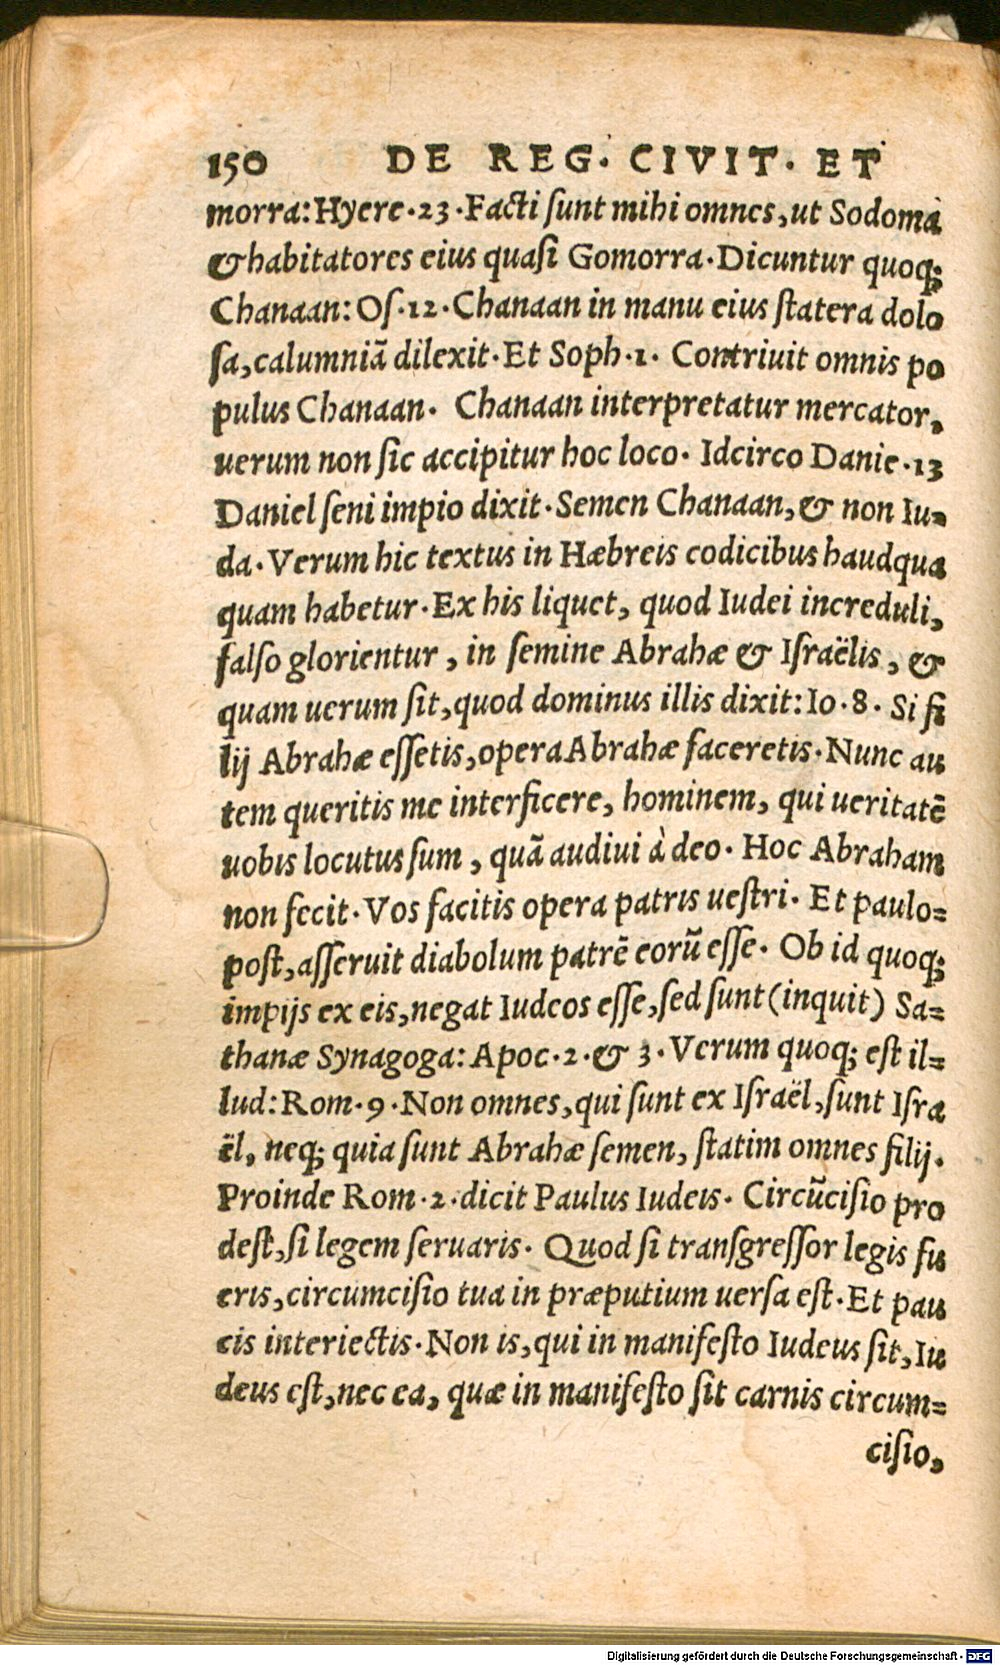 150 DE REG. CIVIT. ET
morra: Hyere.23. Facti ſunt mihi omnes, ut Sodoma
& habitatores eius quaſi Gomorra. Dicuntur quoq;
Chanaan: Oſ.12. Chanaan in manu eius ſtatera dolo
ſa, calumniā dilexit. Et Soph.1. Contriuit omnis po
pulus Chanaan. Chanaan interpretatur mercator,
uerum non ſic accipitur hoc loco. Idcirco Danie.13
Daniel ſeni impio dixit. Semen Chanaan, & non Iu=
da. Verum hic textus in Hæbreis codicibus haudqua
quam habetur. Ex his liquet, quod Iudei increduli,
falſo glorientur, in ſemine Abrahæ & Iſraëlis, &
quam uerum ſit, quod dominus illis dixit: Io.8. Si fi
lij Abrahæ eſſetis, opera Abrahæ faceretis. Nunc au
tem queritis me interficere, hominem, qui ueritatē
uobis locutus ſum, quā audiui à deo. Hoc Abraham
non fecit. Vos facitis opera patris ueſtri. Et paulo=
poſt, aſſeruit diabolum patrē eorū eſſe. Ob id quoq;
impijs ex eis, negat Iudeos eſſe, ſed ſunt (inquit) Sa=
thanæ Synagoga: Apoc.2. & 3. Verum quoq; eſt il=
lud: Rom.9. Non omnes, qui ſunt ex Iſraël, ſunt Iſra
ël, neq; quia ſunt Abrahæ ſemen, ſtatim omnes filij.
Proinde Rom.2. dicit Paulus Iudeis. Circūciſio pro
deſt, ſi legem ſeruaris. Quod ſi tranſgreſſor legis fu
eris, circumciſio tua in præputium uerſa eſt. Et pau
cis interiectis. Non is, qui in manifeſto Iudeus ſit, Iu
deus eſt, nec ea, quæ in manifeſto ſit carnis circum=
ciſio,
Digitalisierung gefördert durch die Deutsche Forschungsgemeinschaft - DFG